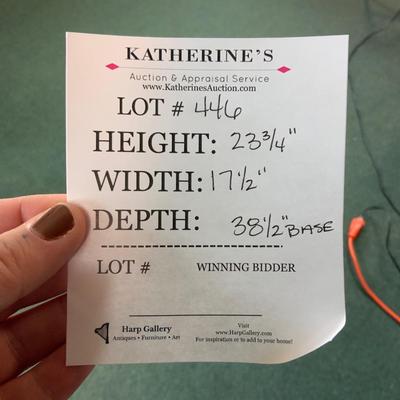 KATHERINE'S
Auction & Appraisal Service
www.KatherinesAuction.com
LOT # 446
HEIGHT: 23 3/4"
WIDTH: 17 1/2"
DEPTH: 38 1/2" BASE
LOT # WINNING BIDDER
Harp Gallery
Antiques • Furniture • Art
Visit
www.HarpGallery.com
For inspiration or to add to your home!